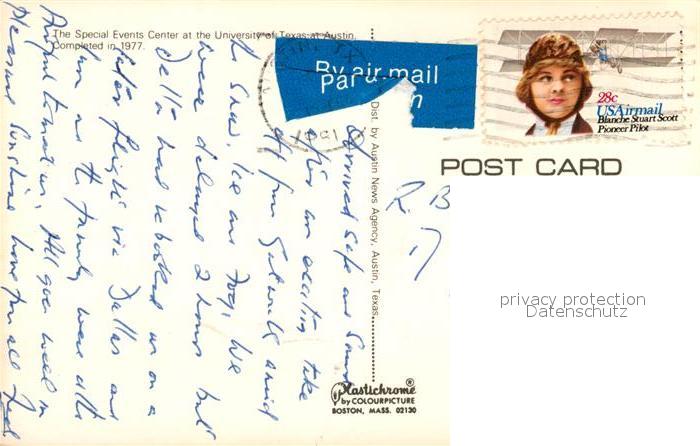 The Special Events Center at the University of Texas at Austin.
Completed in 1977.
By air mail
Par
28c
USAirmail
Blanche Stuart Scott
Pioneer Pilot
POST CARD
Dist. by Austin News Agency, Austin, Texas
Arrived safe and Sound
after an exciting take
off from Gatwick amid
the Snow, Ice and Fog. We
were delayed 2 hours but
Delta had rebooked us on a
later flight via Dallas and
as the family were
at. All goes well in
Pleasant Sunshine love
privacy protection
Datenschutz
Plastichrome®
by COLOURPICTURE
BOSTON, MASS. 02130